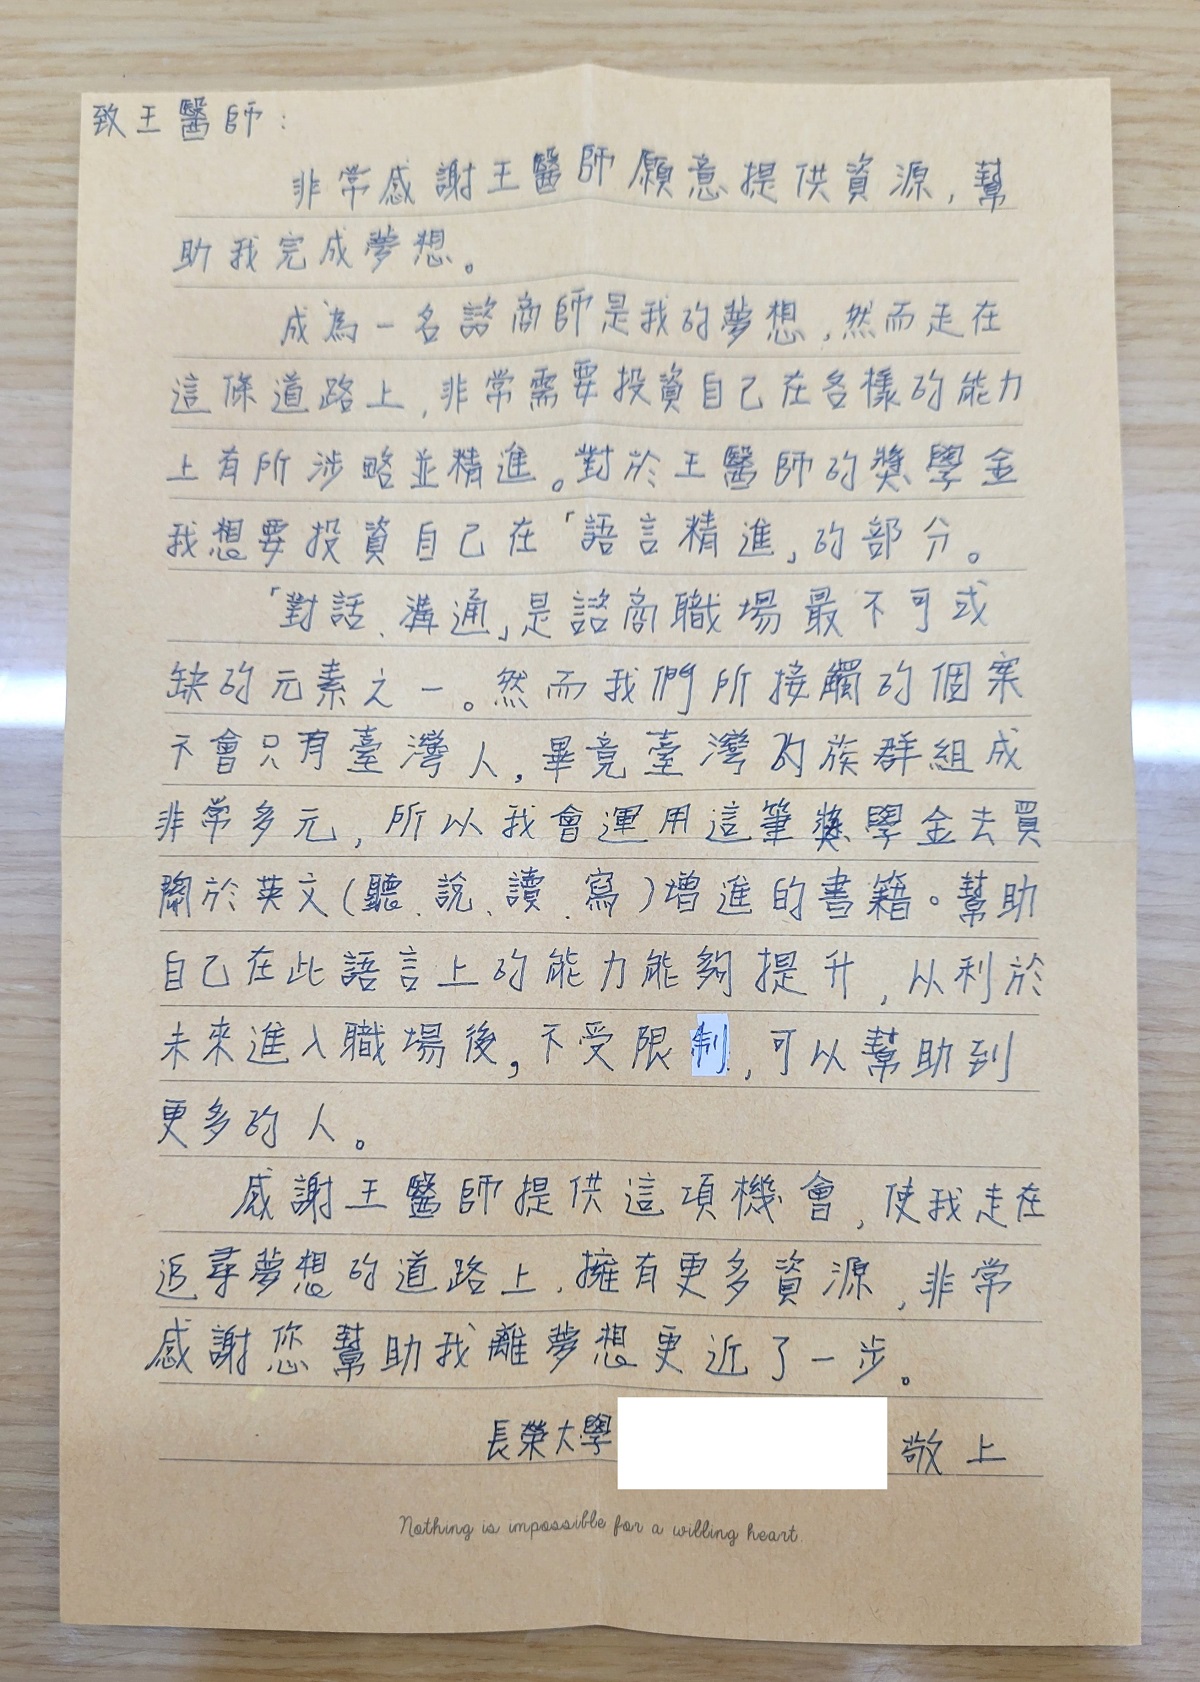 致王醫師：
非常感謝王醫師願意提供資源，幫
助我完成夢想。
成為一名諮商師是我的夢想，然而走在
這條道路上，非常需要投資自己在各樣的能力
上有所涉略並精進。對於王醫師的獎學金
我想要投資自己在「語言精進」的部分。
「對話、溝通」是諮商職場最不可或
缺的元素之一。然而我們所接觸的個案
不會只有臺灣人，畢竟臺灣的族群組成
非常多元，所以我會運用這筆獎學金去買
關於英文(聽、說、讀、寫)增進的書籍。幫助
自己在此語言上的能力能夠提升，以利於
未來進入職場後，不受限制，可以幫助到
更多的人。
感謝王醫師提供這項機會，使我走在
追尋夢想的道路上，擁有更多資源，非常
感謝您幫助我離夢想更近了一步。
長榮大學 敬上
Nothing is impossible for a willing heart